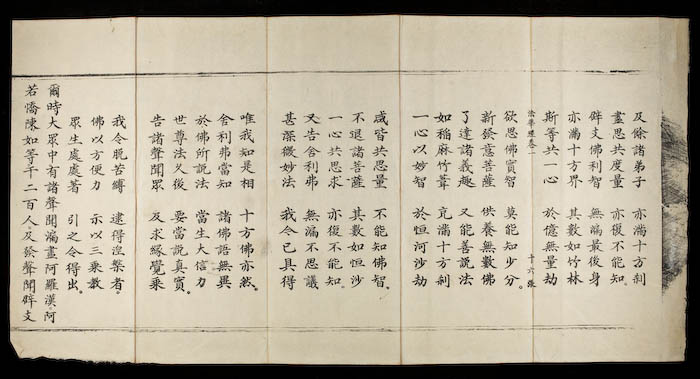 及餘諸弟子 亦滿十方刹
盡思共度量 亦復不能知
辟支佛利智 無漏最後身
亦滿十方界 其數如竹林
斯等共一心 於億無量劫
法華經卷一 十六張
欲思佛實智 莫能知少分
新發意菩薩 供養無數佛
了達諸義趣 又能善說法
如稻麻竹葦 充滿十方刹
一心以妙智 於恒河沙劫
咸皆共思量 不能知佛智
不退諸菩薩 其數如恒沙
一心共思求 亦復不能知
又告舍利弗 無漏不思議
甚深微妙法 我今已具得
唯我知是相 十方佛亦然
舍利弗當知 諸佛語無異
於佛所說法 當生大信力
世尊法久後 要當說真實
告諸聲聞眾 及求緣覺乘
我令脫苦縛 逮得涅槃者
佛以方便力 示以三乘教
眾生處處著 引之令得出
爾時大眾中有諸聲聞漏盡阿羅漢阿
若憍陳如等千二百人及發聲聞辟支